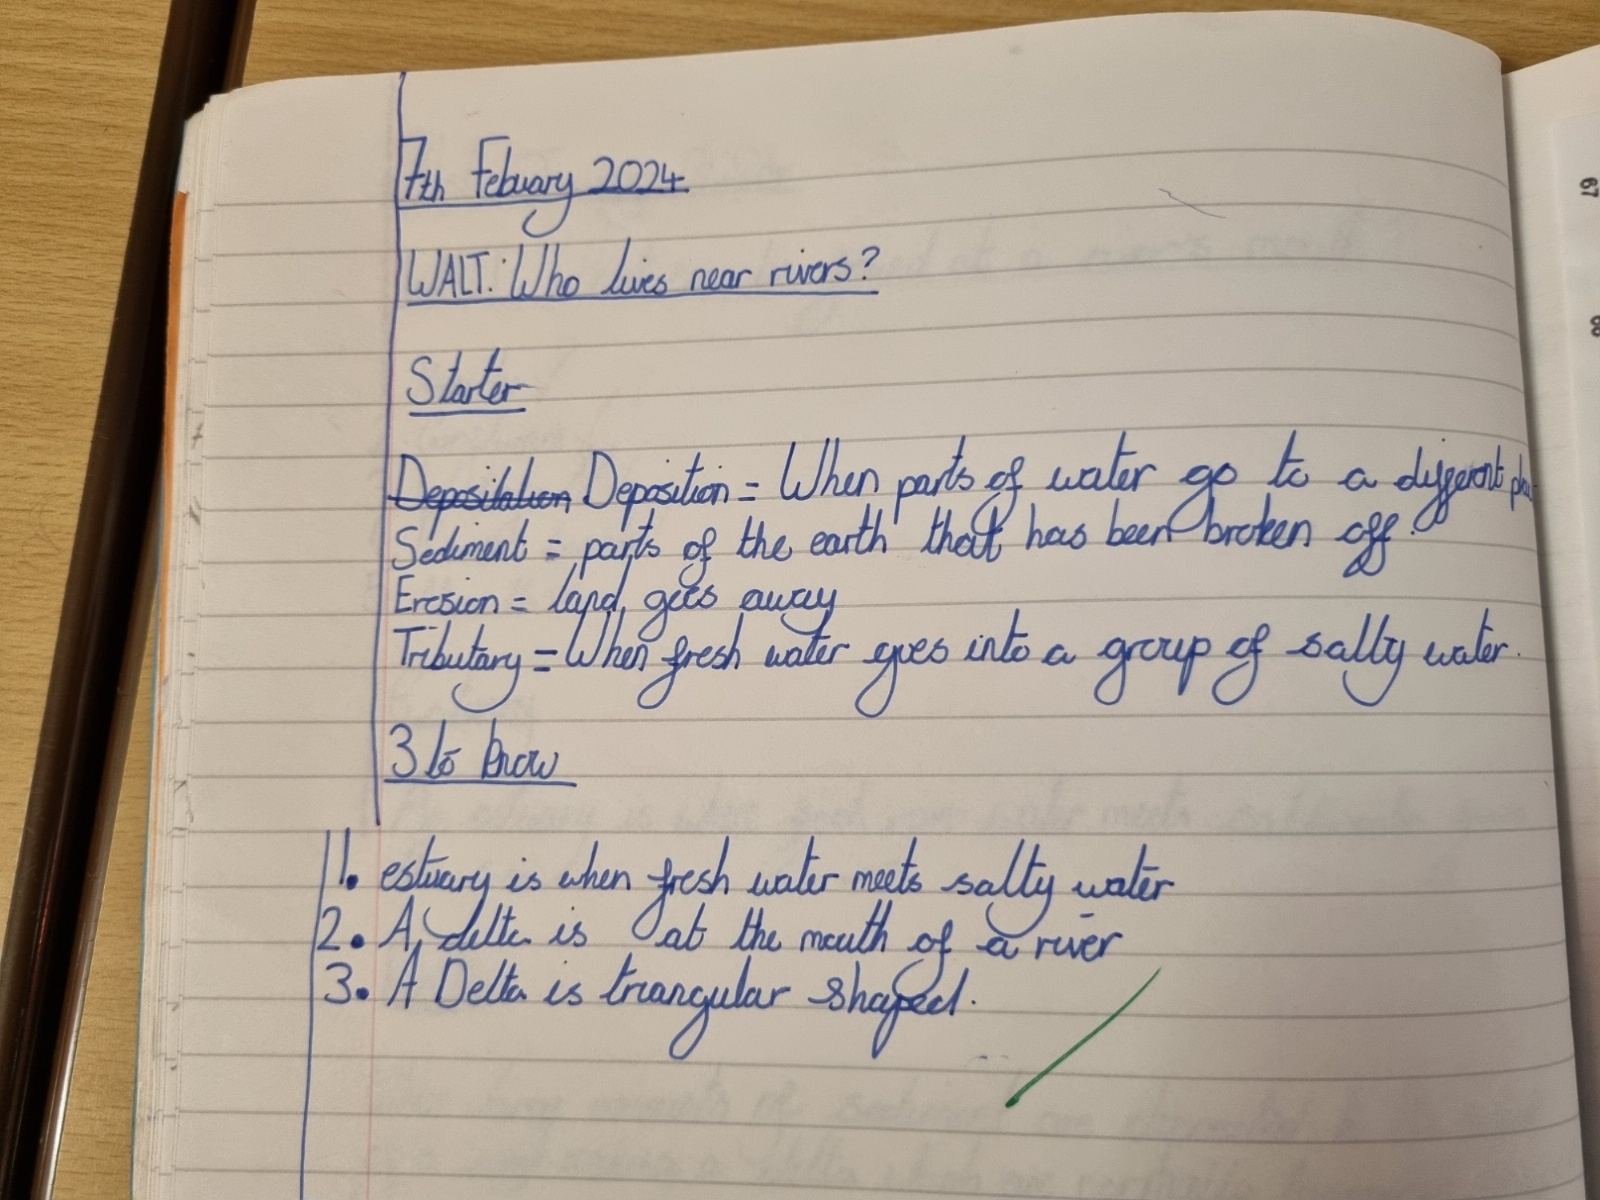 7th Febuary 2024
WALT: Who lives near rivers?
Starter
Depositation Deposition = When parts of water go to a different
Sediment = parts of the earth that has been broken off.
Erosion = land goes away
Tributary = When fresh water goes into a group of salty water.
3 to know
1. estuary is when fresh water meets salty water
2. A delta is at the mouth of a river
3. A Delta is triangular shaped.
67